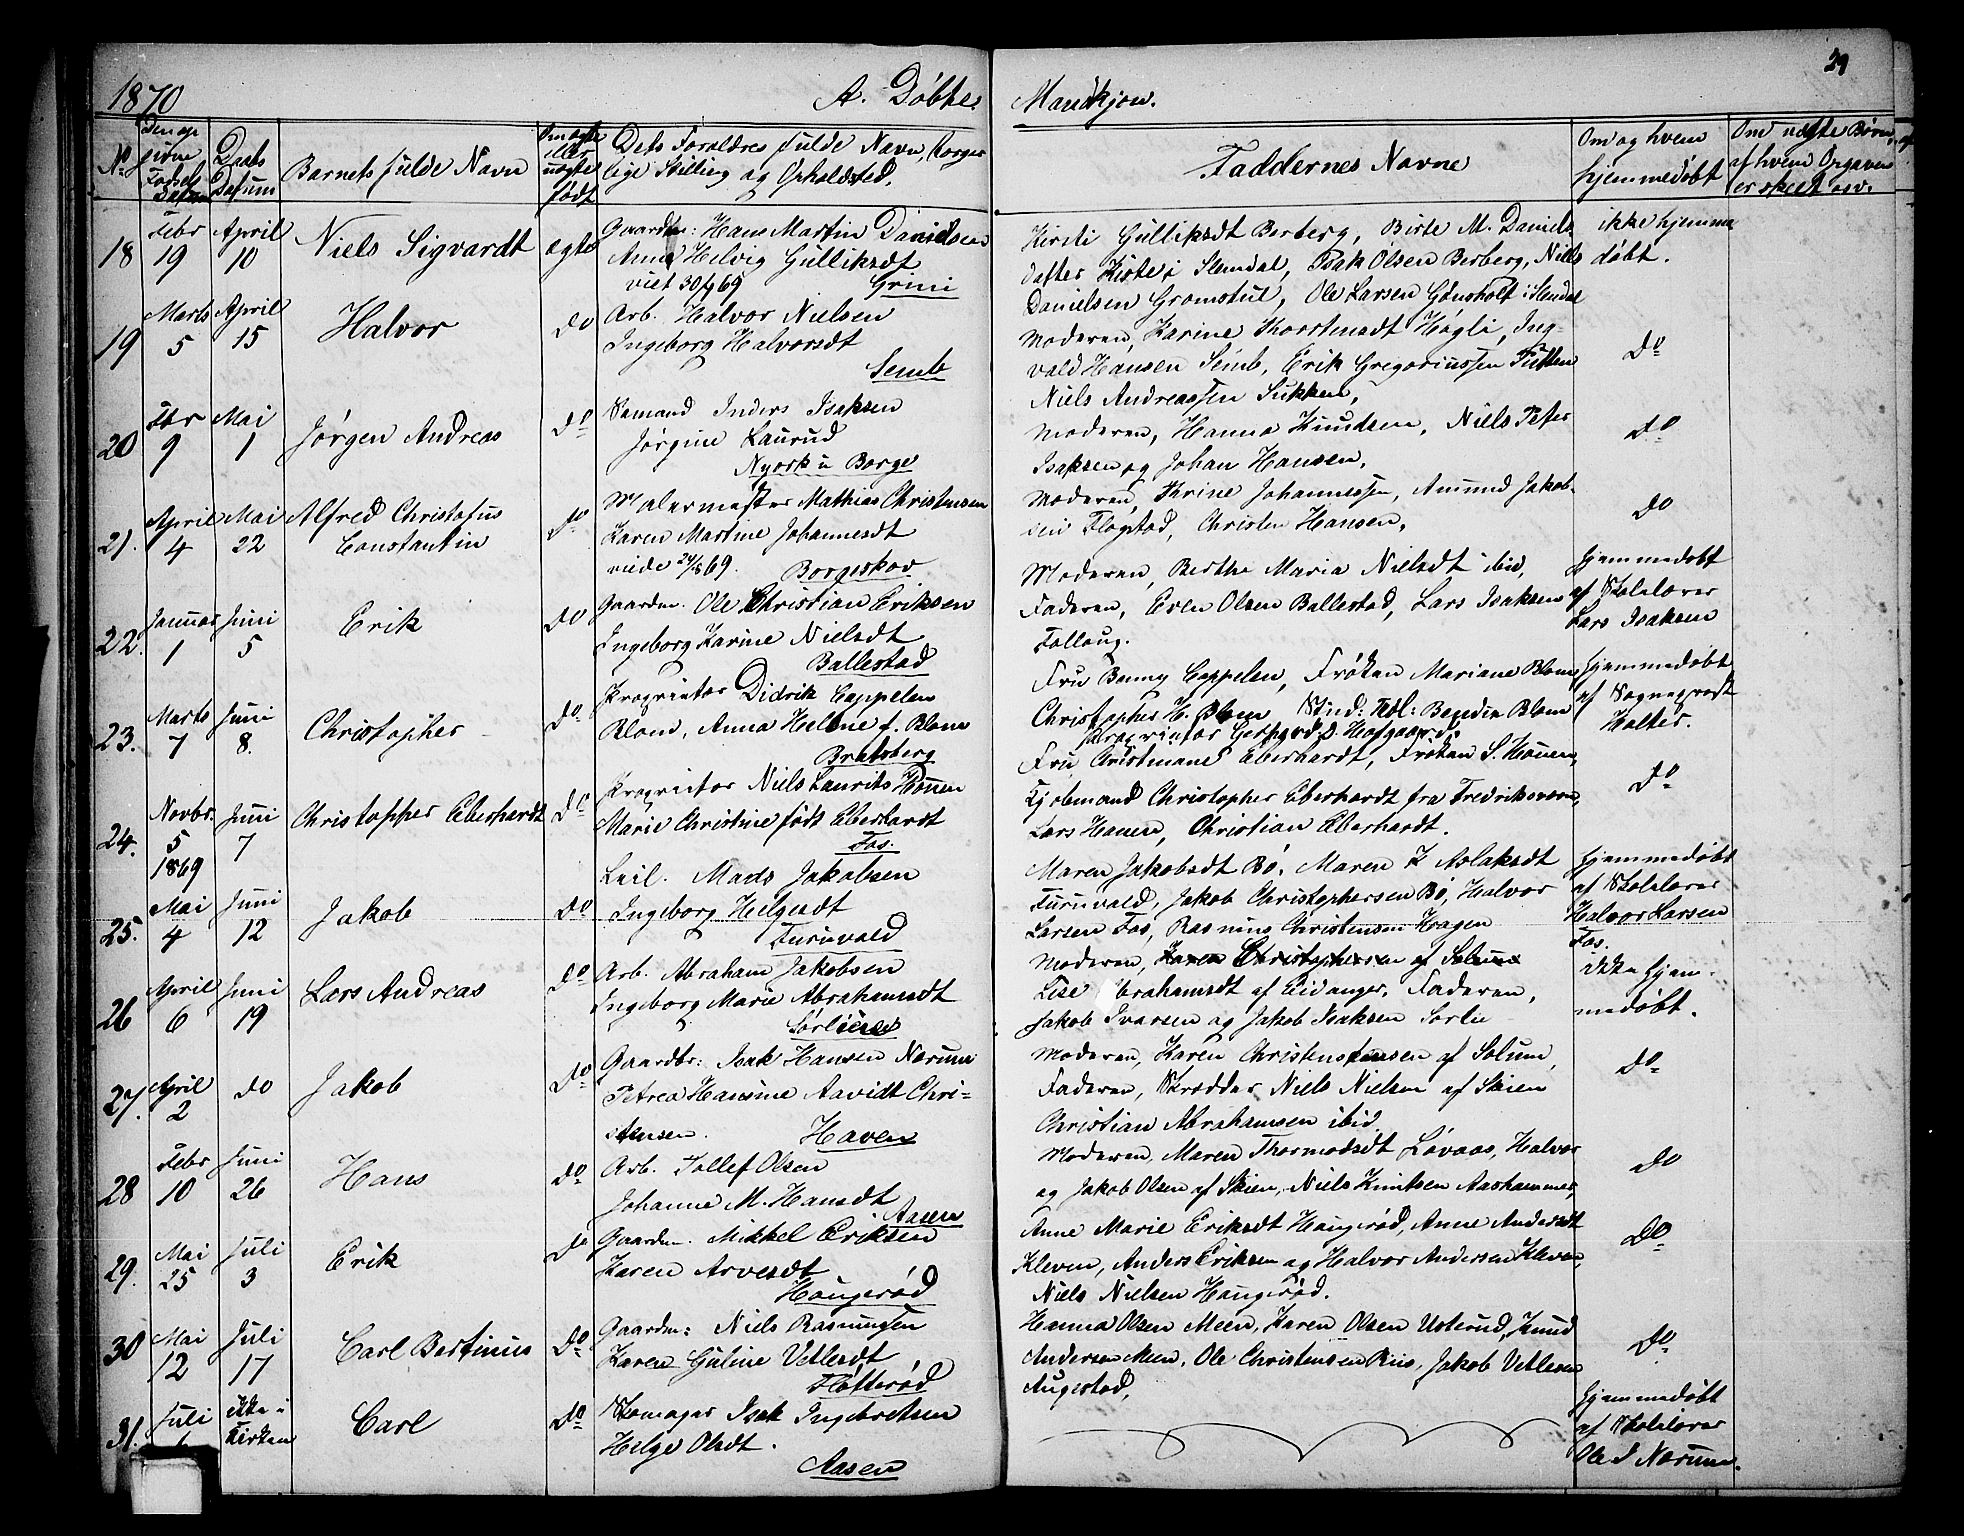 29
1870
A. Døbte.
Mandkjøn.
No
Barnets fulde Navn
Dets Forældres fulde Navn, Borger
lige Stilling og Opholdsted.
Faddernes Navne
Om og hvem
hjemmedøbt
Om uægte Børn,
af hvem Opgaven
er skeet osv.
18
Febr
19
April
10
Niels Sigvardt
ægte
Gaardm: Hans Martin Danielsen
Anne Helvig Gulliksdt
viet 30/9 69 Grini
Kirsti Gulliksdt Berberg, Birte M. Daniels
datter Kiste i Slemdal, Isak Olsen Berberg, Niels
Danielsen Gromstul, Ole Larsen Gønsholt i Slemdal
ikke hjemme
døbt.
19
Marts
5
April
15
Halvor
do
Arb. Halvor Nielsen
Ingeborg Halvorsdt
Semb
Moderen, Karine Thorstensdt Høgli, Ing-
vald Hansen Semb, Erik Gregoriussen
Niels Andreassen
Do
20
Febr
9
Mai
1
Jørgen Andreas
do
Sømand Inders Isaksen
Jørgine Laurud
Nyork u Borge
Moderen, Hanna Knudsen, Niels Peter
Isaksen og Johan Hansen.
do
21.
April
4
Mai
22
Alfred Christofus
Constantin
do
Malermester Mathias Christensen
Karen Martine Johannesdt
viede 24/8 69. Borgeskov
Moderen, Trine Johannessen, Amund Jakob-
sen Flogstad, Christen Hansen.
do
22.
Januar
1
Juni
5
Erik
do
Gaardm. Ole Christian Eriksen
Ingeborg Karine Nielsdt
Ballestad
Moderen, Berthe Maria Nielsdt ibid,
Faderen, Even Olsen Ballestad, Lars Isaksen
Follaug.
Hjemmedøbt
af Skolelærer
Lars Isaksen
23.
Marts
7
Juni
8.
Christopher
do
Proprietær Didrik Cappelen
Blom, Anna Helene f. Blom
Bratsberg
Fru Benny Cappelen, Frøken Mariane Blom,
Christopher H. Blom Stud: Theol: Blom
Proprietær Gerhard D. Hofgaard.
Hjemmedøbt
af Sogneprest
Halter.
24.
Novbr.
5
1869
Juni
7
Christopher Eberhardt
do
Proprietær Niels Laurits Houen
Marie Christine født Eberhardt
Fos.
Fru Christmane Eberhardt, Frøken S. Houen,
Kjøbmand Christopher Eberhardt fra Fredriksværn,
Lars Houen, Christian Eberhardt.
Do
25.
Mai
4
Juni
12
Jakob
do
Leil. Mads Jakobsen
Ingeborg Helgesdt
Furuvald
Maren Jakobsdt Bø, Maren K Aslaksdt
Furuvald, Jakob Christophersen Bø, Halvor
Larsen Fos, Rasmus Christensen Kragen
Hjemmedøbt
af Skolelærer
Halvor Larsen
Fos.
26
April
6
Juni
19
Lars Andreas
do
Arb. Abraham Jakobsen
Ingeborg Marie Abrahamsdt
Moderen, Karen Christophersen af Solum
Lise Abrahamsdt af Eidanger, Faderen,
Jakob Ivarsen og Jakob Isaksen Sørlie
ikke hjem-
medøbt.
27.
April
2
do
Jakob
do
Gaardbr: Isak Hansen Nørum
Petrea Hansine Aavidt Chri-
stensen. Haven
Moderen, Karen Christenstensen af Solum,
Faderen, Skrædder Niels Nielsen af Skien
Christian Abrahamsen ibid.
do
28
Febr
10
Juni
26
Hans
do
Arb. Tollef Olsen
Johanne M. Hansdt
Aasen
Moderen, Maren Thormodsdt Løvaas, Halvor
og Jakob Olsen af Skien, Niels Knutsen Aashammer,
do
29.
Mai
25
Juli
3
Erik
do
Gaardm. Mikkel Eriksen
Karen Arvesdt
Haugerød
Anne Marie Eriksdt Haugerød, Anne Andersdt
Kleven, Anders Eriksen og Halvor Andersen Kleven,
Niels Nielsen Haugerød.
do
30
Mai
12
Juli
17
Carl Bertinius
do
Gaardm: Niels Rasmussen
Karen Guline Vetlesdt
Flotterød
Hanna Olsen Meen, Karen Olsen Usterud, Knud
Andersen Meen, Ole Christensen Riis, Jakob Vetlesen
Augestad,
do
31.
Juli
ikke i
Kirken
Carl
do
Skomager Isak Ingebretsen
Helge Olsdt.
Aasen
Hjemmedøbt
af Skolelærer
Ole I Nørum.